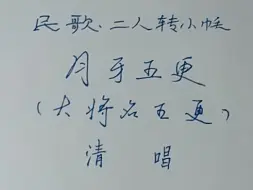 民歌.二人转小帽
月牙五更
(大将名五更)
清 唱